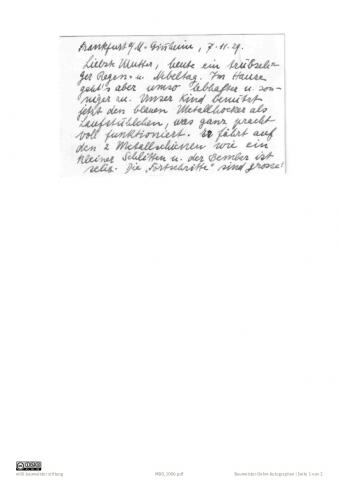 Frankfurt a/M-Ginnheim, 7.11.29.
Liebste Mutter, heute ein trübseli-
ger Regen- u. Nebeltag. Im Hause
geht's aber umso lebhafter u. son-
niger zu. Unser Kind benützt
jetzt den blauen Metallhocker als
Laufstühlchen, was ganz pracht
voll funktioniert. Er fährt auf
den 2 Metallschienen wie ein
kleiner Schlitten u. der Bember ist
selig. Die „Fortschritte" sind grosse!
willi baumeister stiftung
MBO_1006.pdf
Baumeister-Oehm Autographen | Seite 1 von 2